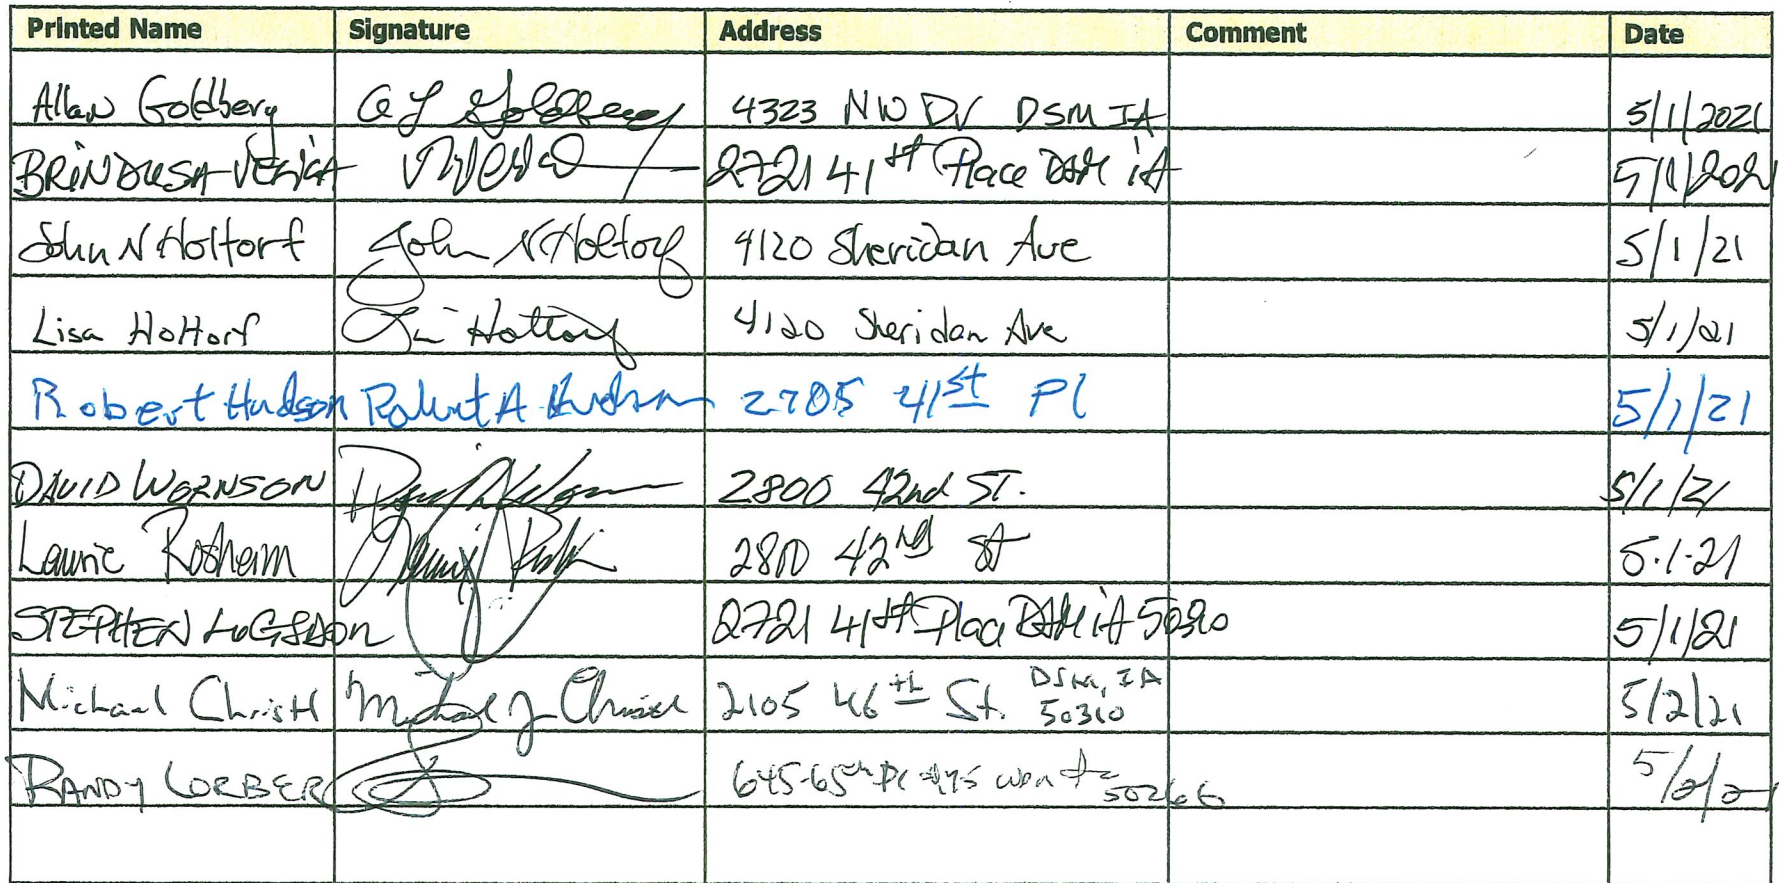 Printed Name Signature Address Comment Date
Allan Goldberg A L Goldberg 4323 NW DV DSM IA 5/1/2021
BRINDUSA VELICA 2721 41st Place DSM iA 5/1/2021
John N Holtorf John N Holtorf 4120 Sheridan Ave 5/1/21
Lisa Holtorf Holtorf 4120 Sheridan Ave 5/1/21
Robert Hudson Robert A Hudson 2705 41st Pl 5/1/21
DAVID WORNSON 2800 42nd ST. 5/1/21
Laurie 42nd St 5-1-21
STEPHEN LOGSDON 2721 41st Place DSM iA 50310 5/1/21
Michael Christl Michael J Christl 2105 46th St. DSM, IA 50310 5/2/21
RANDY LORBER 645-65th Pl 50266 5/2/21